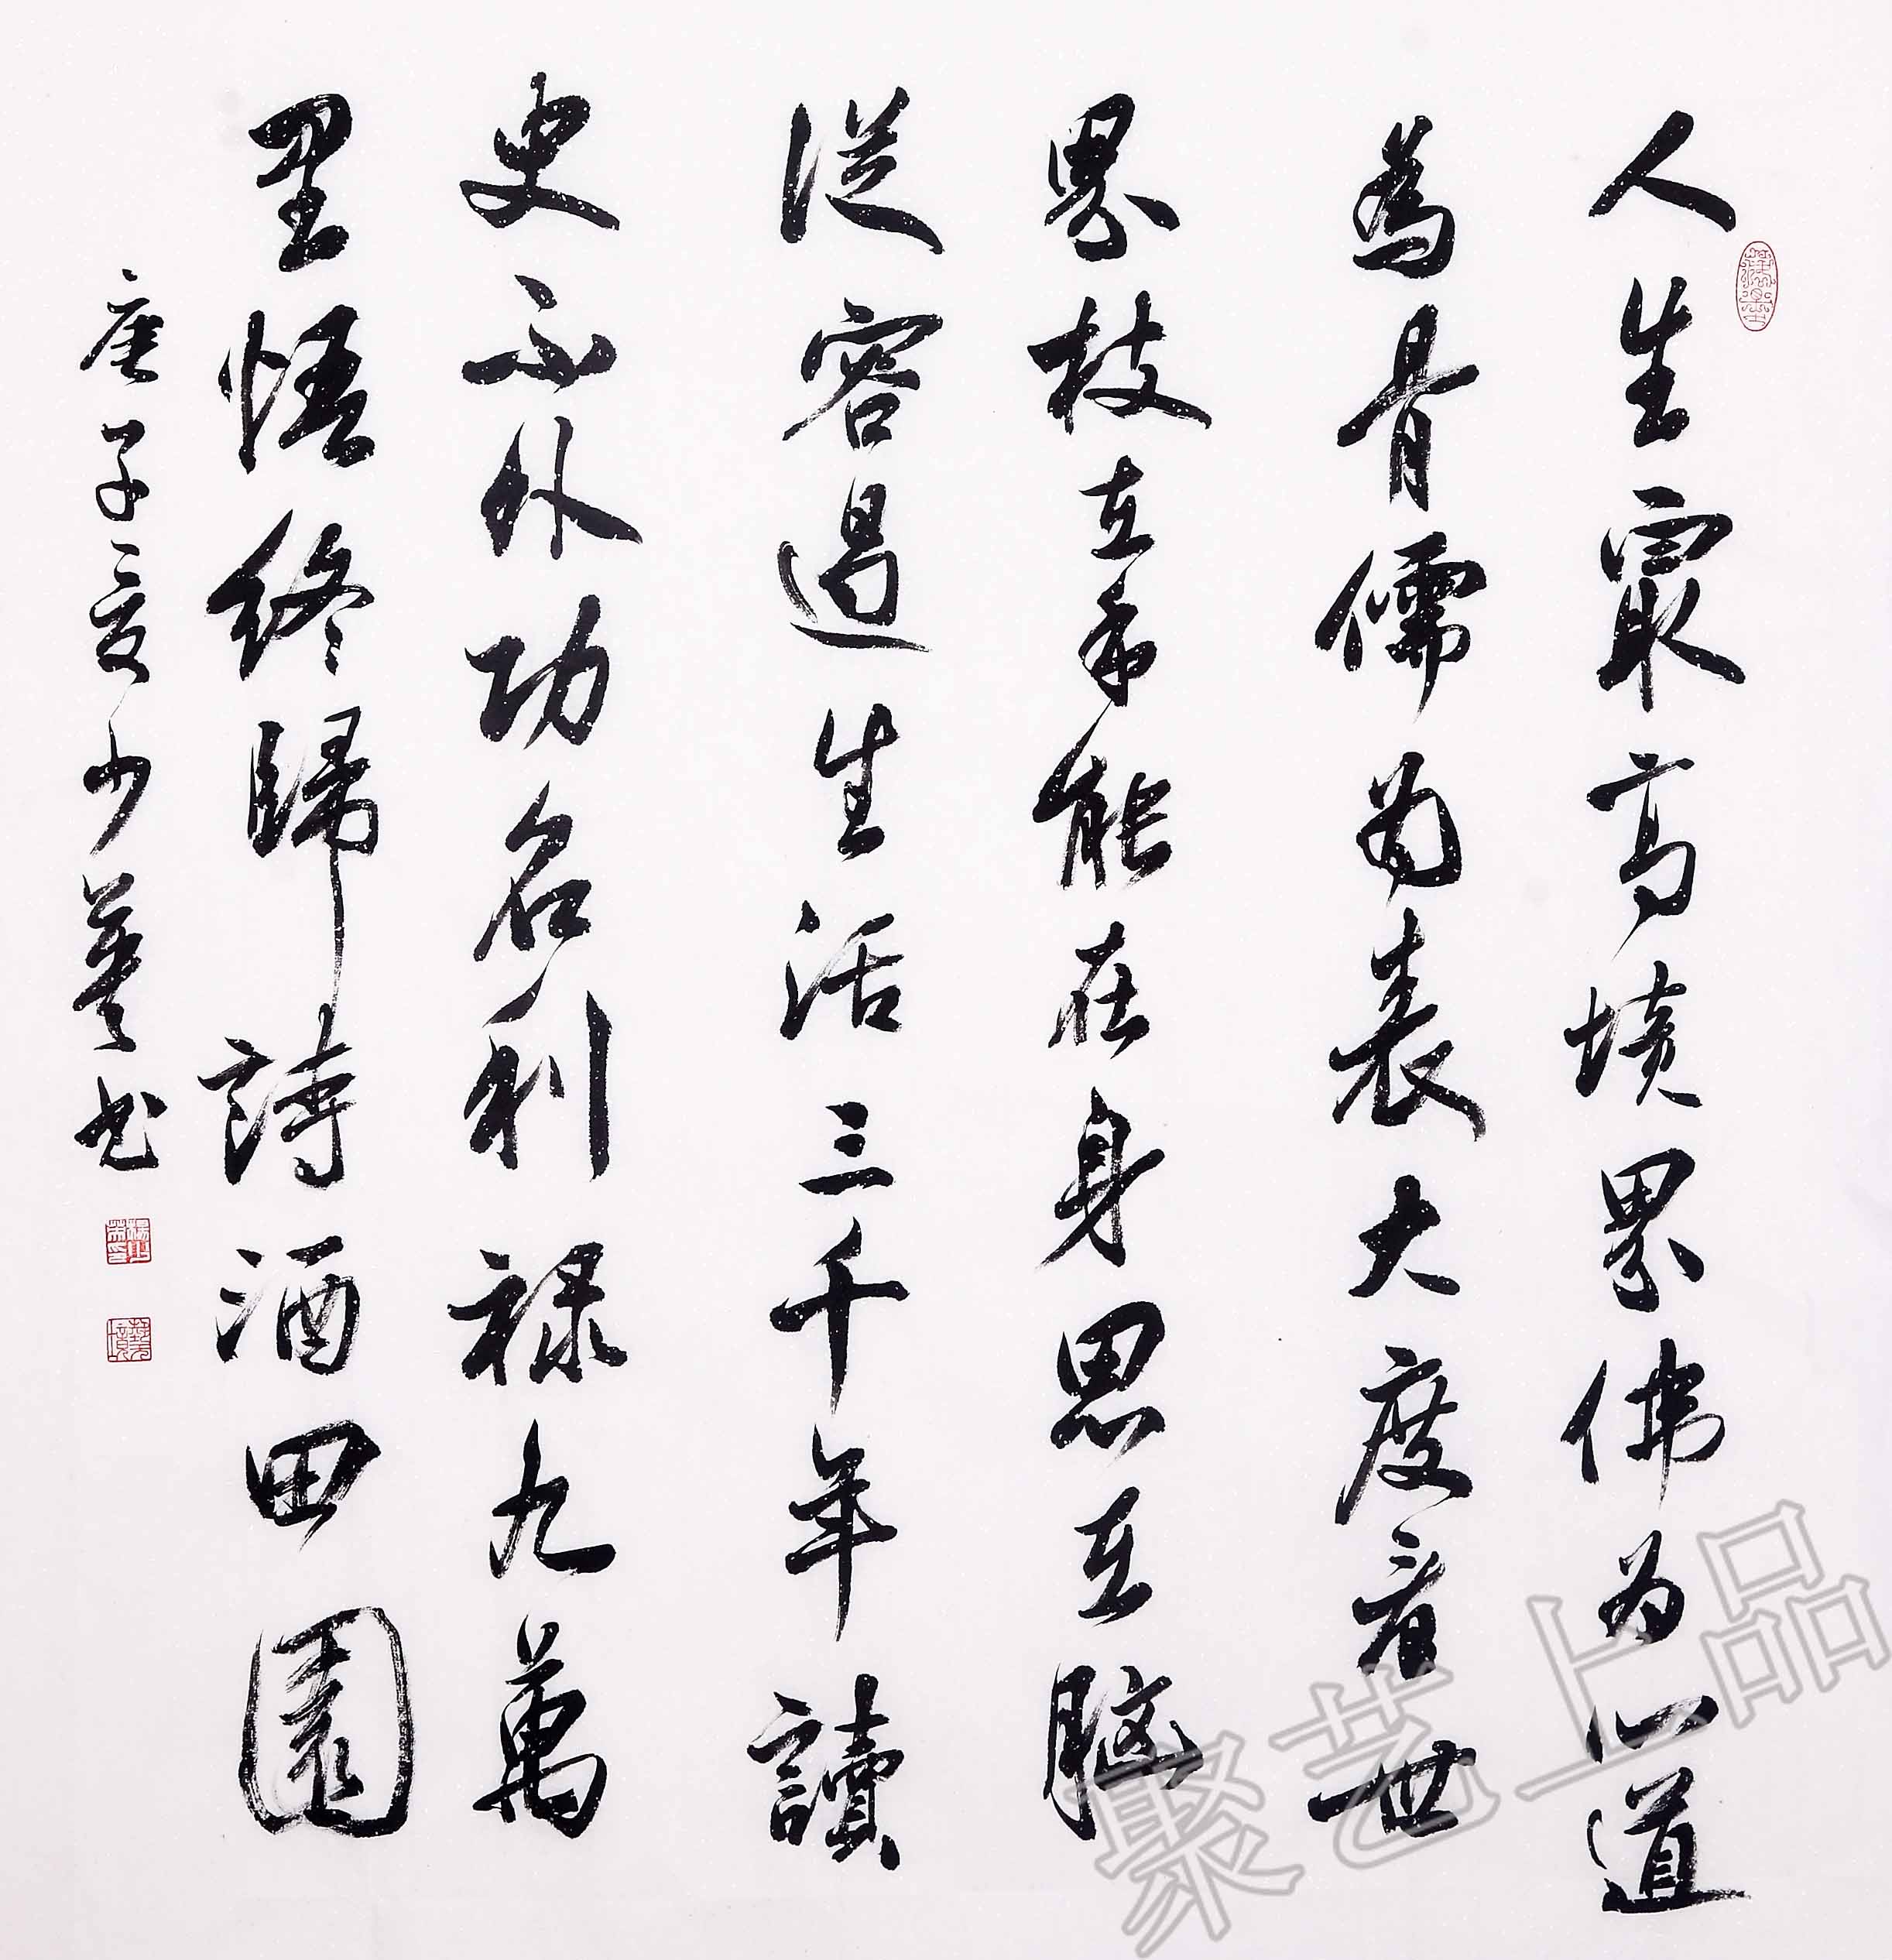 人生最高境界佛为心道
為骨儒为表大度看世
界技在手能在身思在腦
從容過生活三千年讀
史不外功名利禄九萬
里悟終歸詩酒田園
庚子夏少书
聚艺上品